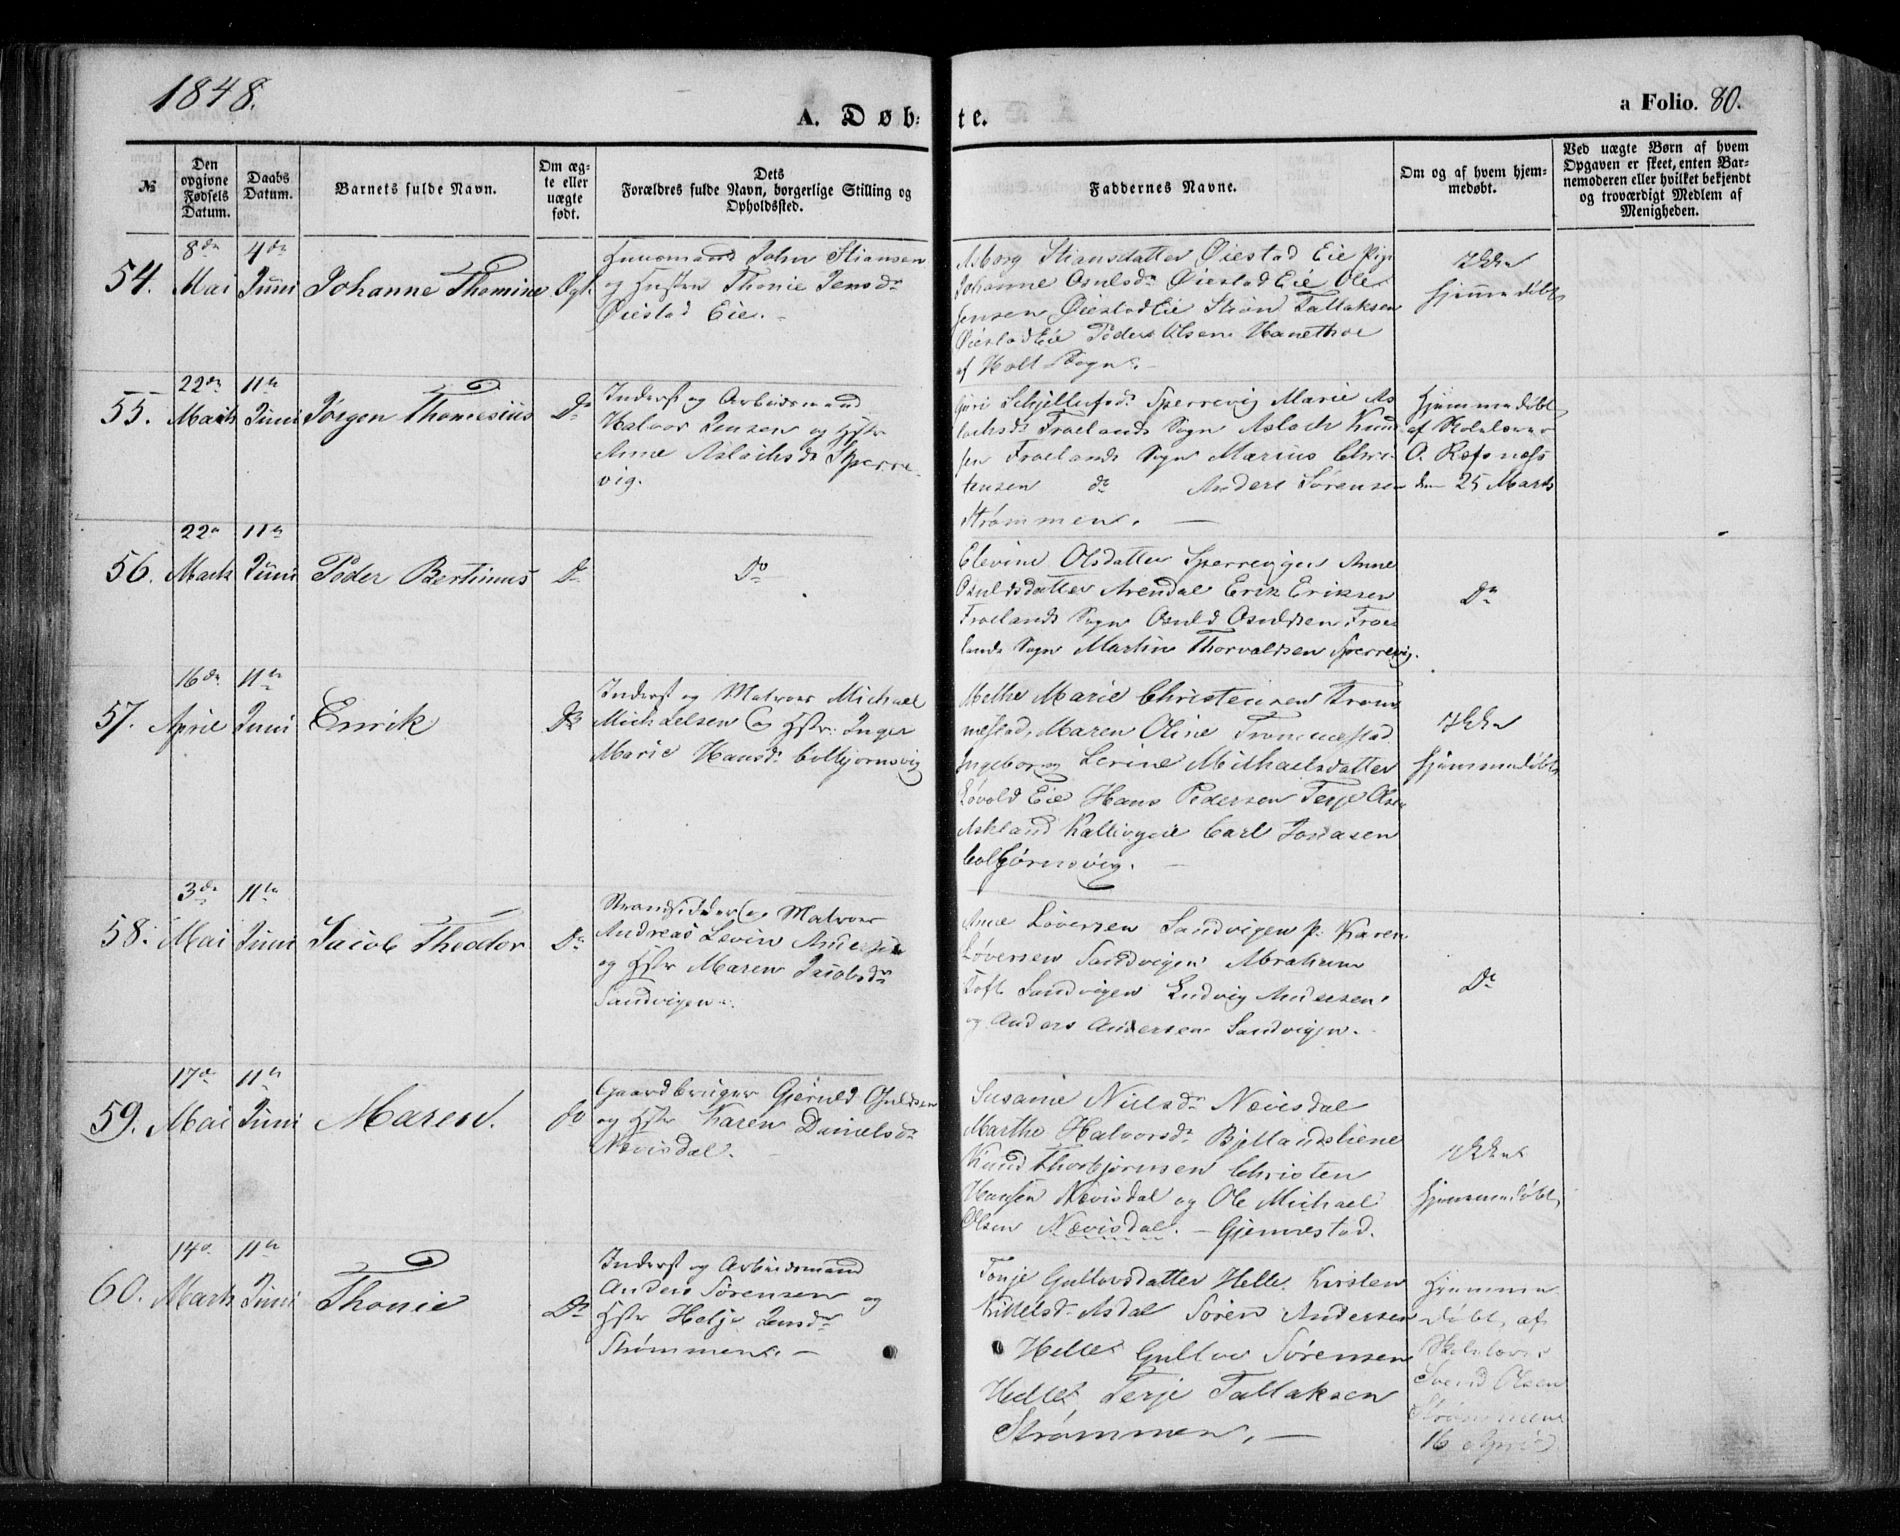 1848.
A. Døb-
te.
a Folio. 80.
№
Den opgivne Fødsels Datum.
Daabs Datum.
Barnets fulde Navn.
Om ægte eller uægte født.
Dets Forældres fulde Navn, borgerlige Stilling og Opholdssted.
Faddernes Navne.
Om og af hvem hjemmedøbt.
Ved uægte Børn af hvem Opgaven er skeet, enten Barnemoderen eller hvilket bekjendt og troværdigt Medlem af Menigheden.
54.
8de Mai
4de Juni
Johanne Thomine
Ægt.
Huusmand John Stiansen
og Hustru Thonie Jensdr
Øiestad Eie.
Asborg Stiansdatter Øiestad Eie Pige
Johanne Osulsdr Øiestad Eie Ole
Jensen Øiestad Eie Stian Tallaksen
Øiestad Eie Peder Olsen Hanethoe
af Holt Sogn.
Ikke
hjemmedøbt
55.
22de Marts
11te Juni
Jørgen Thomesius
Do
Inderst og Arbeidsmand
Halvor Jensen og Hstr
Anne Aslachsdr Sperre-
vig.
Guri Sperrevig Marie As-
lachsdr Froelands Sogn Aslach Knud
sen Froelands Sogn Marius Chri-
stensen do Anders Sørensen
Strømmen.
Hjemmedøbt
af Skolelærer
O. Refsnæss
den 25 Marts
56.
22de Marts
11te Juni
Peder Bertinius
Do
Do
Elevine Olsdatter Sperrevigen Anne
Osuldsdatter Arendal Erik Eriksen
Froelands Sogn Osuld Osuldsen Froe-
lands Sogn Martin Thorvaldsen Sperrevig.
Do
57.
16de April
11te Juni
Enrik
Do
Inderst og Matros Michael
Michaelsen og Hstr. Inger
Marie Hansdr Colbjørnsvig
Methe Marie Christensen Trom-
mestad, Maren Oline Trommestad
Ingeborg Serine Michaelsdatter
Løvold Eie Hans Pedersen Terje Olsen
Askland Carl Jonasen
Colbjørnsvig.
Ikke
hjemmedøbt
58.
3de Mai
11te Juni
Jacob Theodor
Do
Strandsidder og Matros
Andreas Levin Andersen
og Hstr Maren Jacobsdr
Sandvigen.
Anne Løversen Sandvigen p. Karen
Løversen Sandvigen Abraham
Toft Sandvigen Ludvig Andersen
og Anders Andersen Sandvigen.
Do
59.
17de Mai
11te Juni
Maren.
do
Gaardbruger Gjeruld Osuldsen
og Hstr Karen Danielsdr
Nævisdal.
Susanne Nielsdr Nævisdal
Marthe Halvorsdr Bjellandsliene
Knud Thorbjørnsen Christen
Hansen Nævisdal og Ole Michael
Olsen Nævisdal. – Gjennestad.
Ikke
hjemmedøbt
60.
14de Marts
11te Juni
Thonie
Do
Inderst og Arbeidsmand
Anders Sørensen og
Hstr Helje Jensdr
Strømmen.
Tonje Gullovsdatter Helle Kirsten
Kittelsdr Asdal Søren Andersen
Helle Gullov Sørensen
Helle Terje Tallaksen
Strømmen.
Hjemme
døbt af
Skolelærer
Svend Olsen
Strømmen
16 April